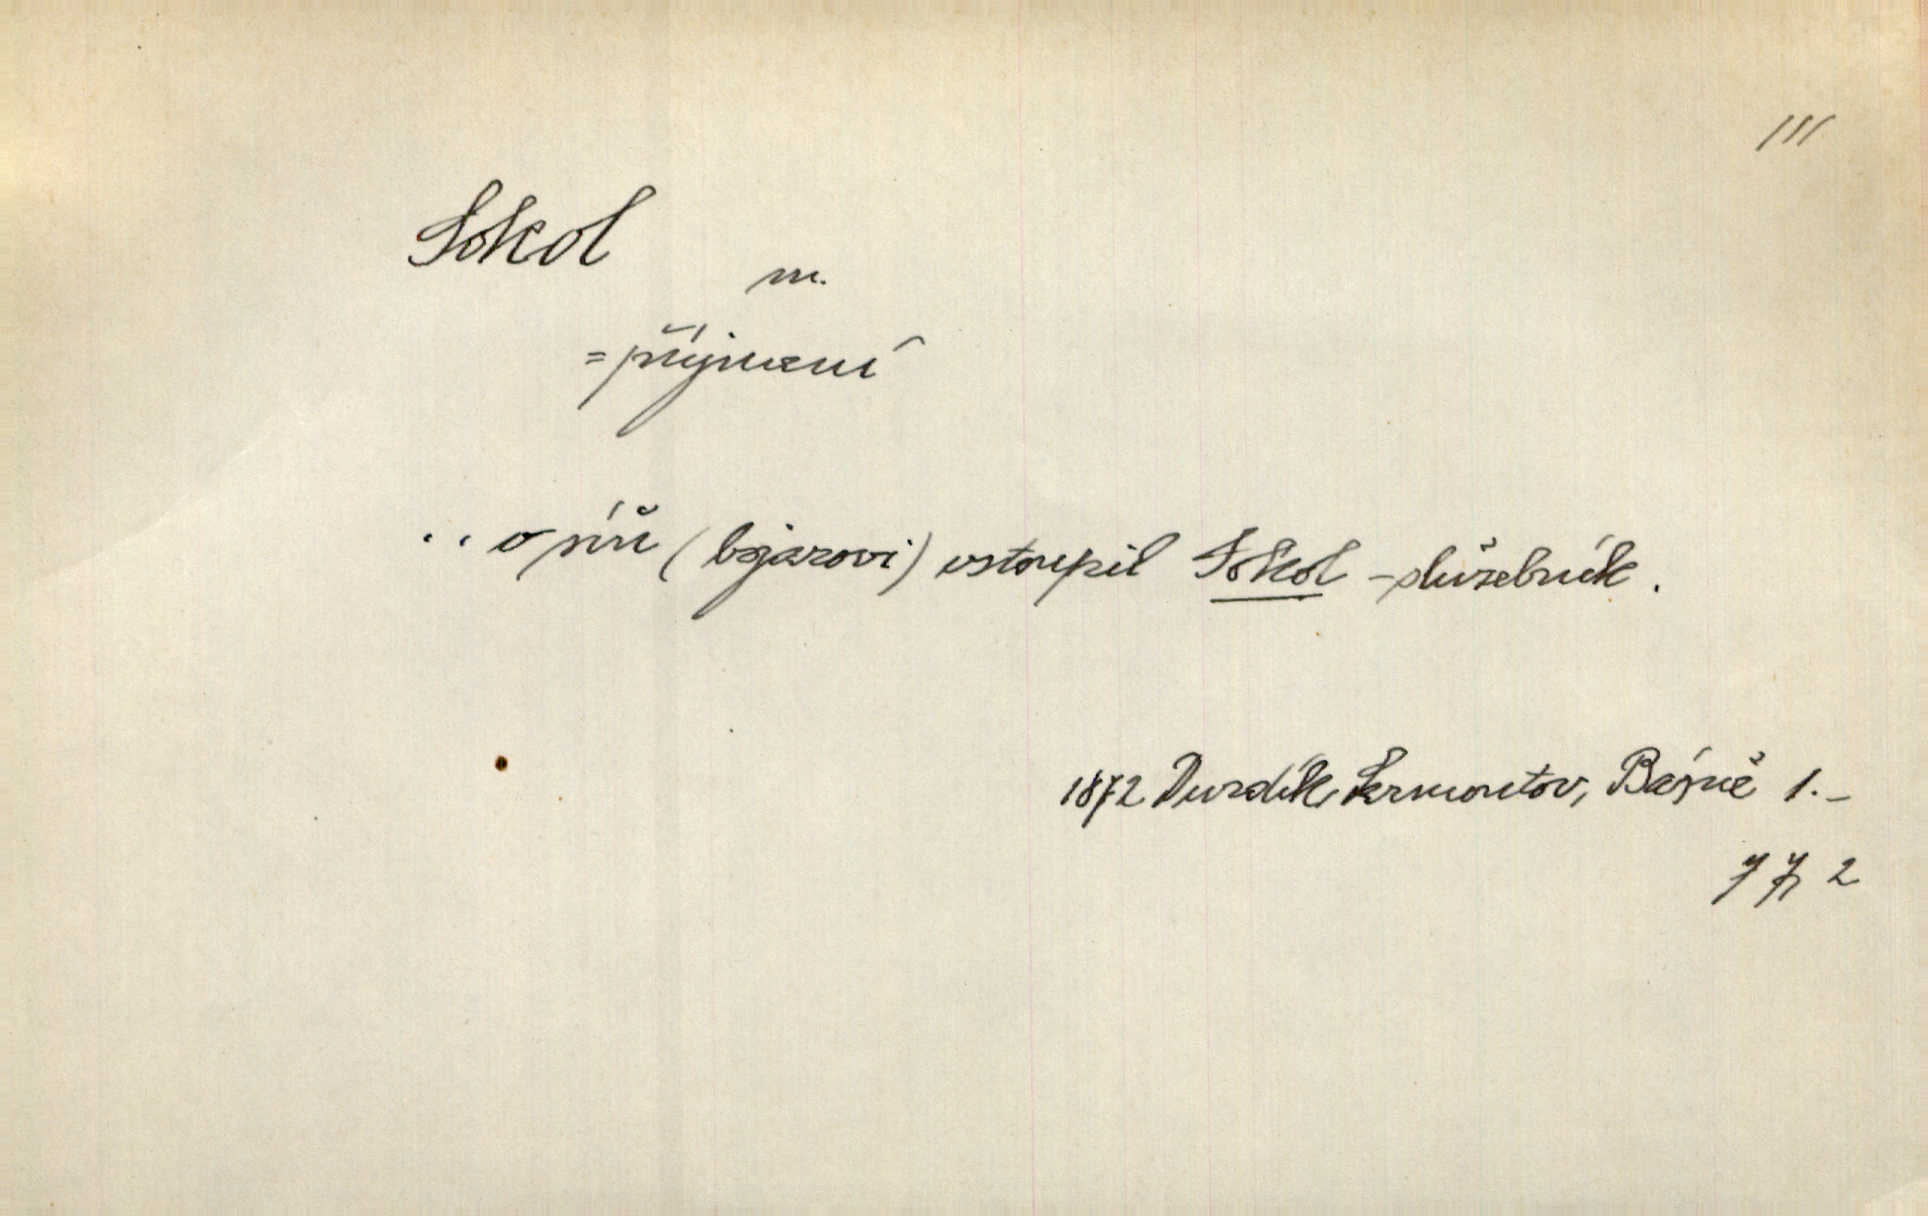 ///
Sokol
m.
= příjmení
.. v síň (bojarovi) vstoupil Sokol - služebník.
1872 Durdík, Lermontov, Básně 1.-
77, 2